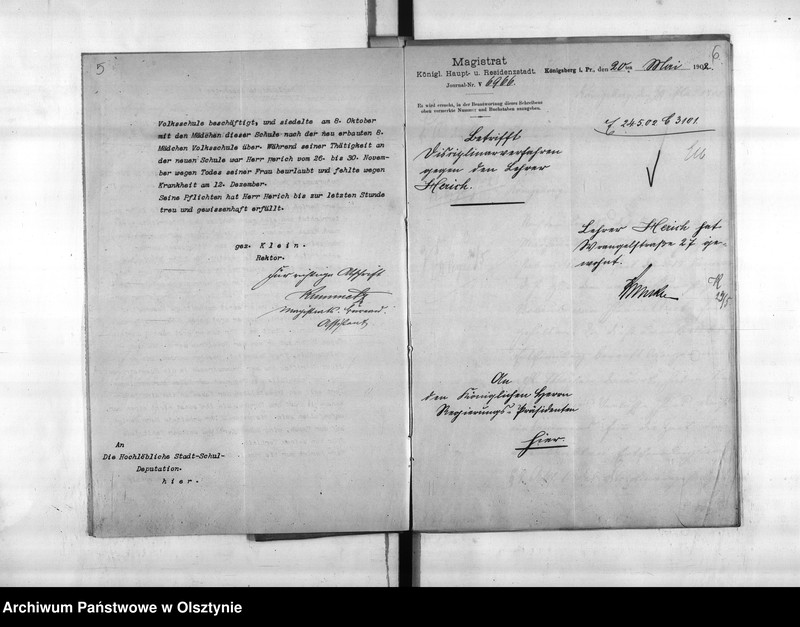 5
Volksschule beschäftigt, und siedelte am 8. Oktober
mit den Mädchen dieser Schule nach der neu erbauten 8.
Mädchen Volksschule über. Während seiner Thätigkeit an
der neuen Schule war Herr Herich vom 26. bis 30. Novem-
ber wegen Todes seiner Frau beurlaubt und fehlte wegen
Krankheit am 12. Dezember.
Seine Pflichten hat Herr Herich bis zur letzten Stunde
treu und gewissenhaft erfüllt.
gez. Klein.
Rektor.
Für richtige Abschrift
Magistrats-Bureau-
Assistent
An
Die Hochlöbliche Stadt-Schul-
Deputation.
hier.
6
Magistrat
Königl. Haupt- u. Residenzstadt.
Königsberg i. Pr., den 20ten Mai 1902.
Journal-Nr. V 6966.
Es wird ersucht, in der Beantwortung dieses Schreibens
oben vermerkte Nummer und Buchstaben anzugeben.
24.5.02 C 3101
Betrifft
Disciplinarverfahren
gegen den Lehrer
Herich.
Lehrer Herich hat
Wrangelstraße 27 ge-
wohnt.
An
den Königlichen Herrn
Regierungs-Präsidenten
hier.
Archiwum Państwowe w Olsztynie